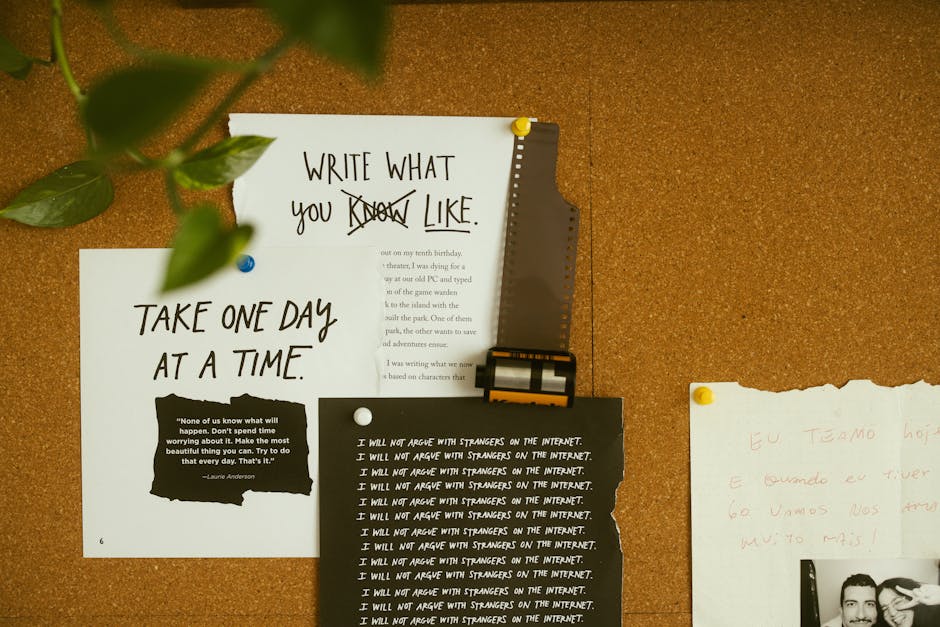 WRITE WHAT
YOU KNOW LIKE.
out on my tenth birthday.
theater, I was dying for a
at our old PC and typed
of the game warden
to the island with the
built the park. One of them
park, the other wants to save
adventures ensue.
I was writing what we now
based on characters that
TAKE ONE DAY
AT A TIME.
“None of us know what will
happen. Don’t spend time
worrying about it. Make the most
beautiful thing you can. Try to do
that every day. That’s it.”
—Laurie Anderson
6
I WILL NOT ARGUE WITH STRANGERS ON THE INTERNET.
I WILL NOT ARGUE WITH STRANGERS ON THE INTERNET.
I WILL NOT ARGUE WITH STRANGERS ON THE INTERNET.
I WILL NOT ARGUE WITH STRANGERS ON THE INTERNET.
I WILL NOT ARGUE WITH STRANGERS ON THE INTERNET.
I WILL NOT ARGUE WITH STRANGERS ON THE INTERNET.
I WILL NOT ARGUE WITH STRANGERS ON THE INTERNET.
I WILL NOT ARGUE WITH STRANGERS ON THE INTERNET.
I WILL NOT ARGUE WITH STRANGERS ON THE INTERNET.
I WILL NOT ARGUE WITH STRANGERS ON THE INTERNET.
I WILL NOT ARGUE WITH STRANGERS ON THE INTERNET.
I WILL NOT ARGUE WITH STRANGERS ON THE INTERNET.
I WILL NOT ARGUE WITH STRANGERS ON THE INTERNET.
EU TE AMO hoj
E Quando eu tiver
60 vamos nos
muito mais!